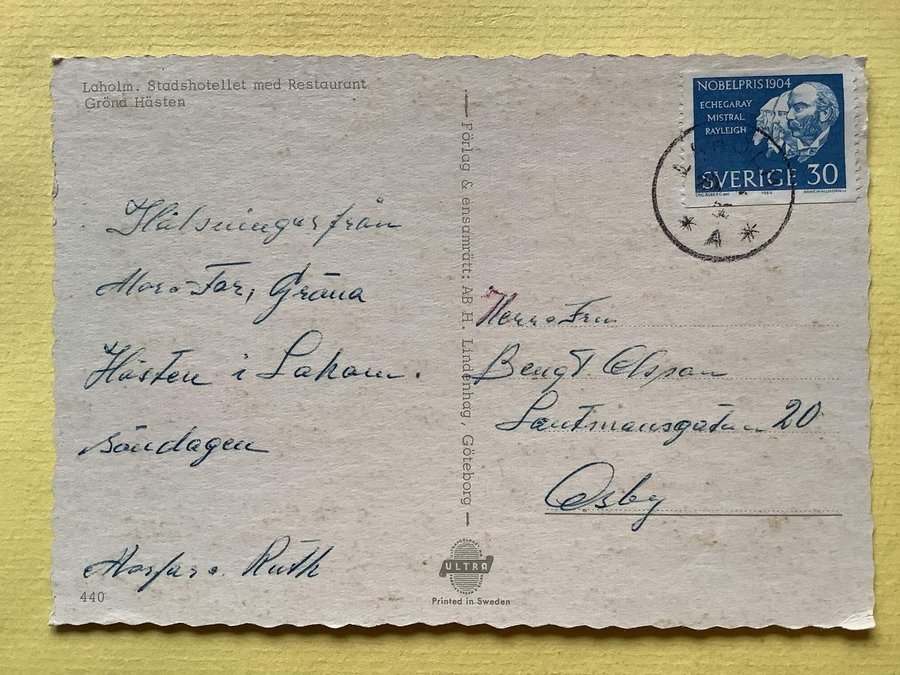 Laholm. Stadshotellet med Restaurant
Gröna Hästen
NOBELPRIS 1904
ECHEGARAY
MISTRAL
RAYLEIGH
SVERIGE 30
A
Hälsningar från
Mor o Far, Gröna
Hästen i Laholm.
söndagen
Morfar o. Ruth
440
Förlag & ensamrätt: AB H. Lindenhag, Göteborg
Herr o Fru
Bengt Olsson
Lantmansgatan 20
Osby
ULTRA
Printed in Sweden